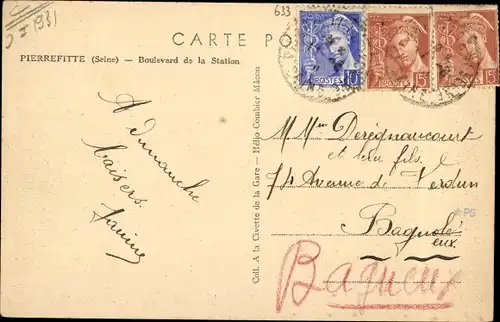 7 * 1931
633
CARTE PO
PIERREFITTE (Seine) — Boulevard de la Station
POSTES 10
POSTES 15
POSTES 15
A dimanche
baisers.
Janine
Coll. A la Civette de la Gare — Hélio Combier Mâcon
M. Mme Derégnaucourt
et leur fils.
74 Avenue de Verdun
Bagnole
eux.
PS
Bagneux